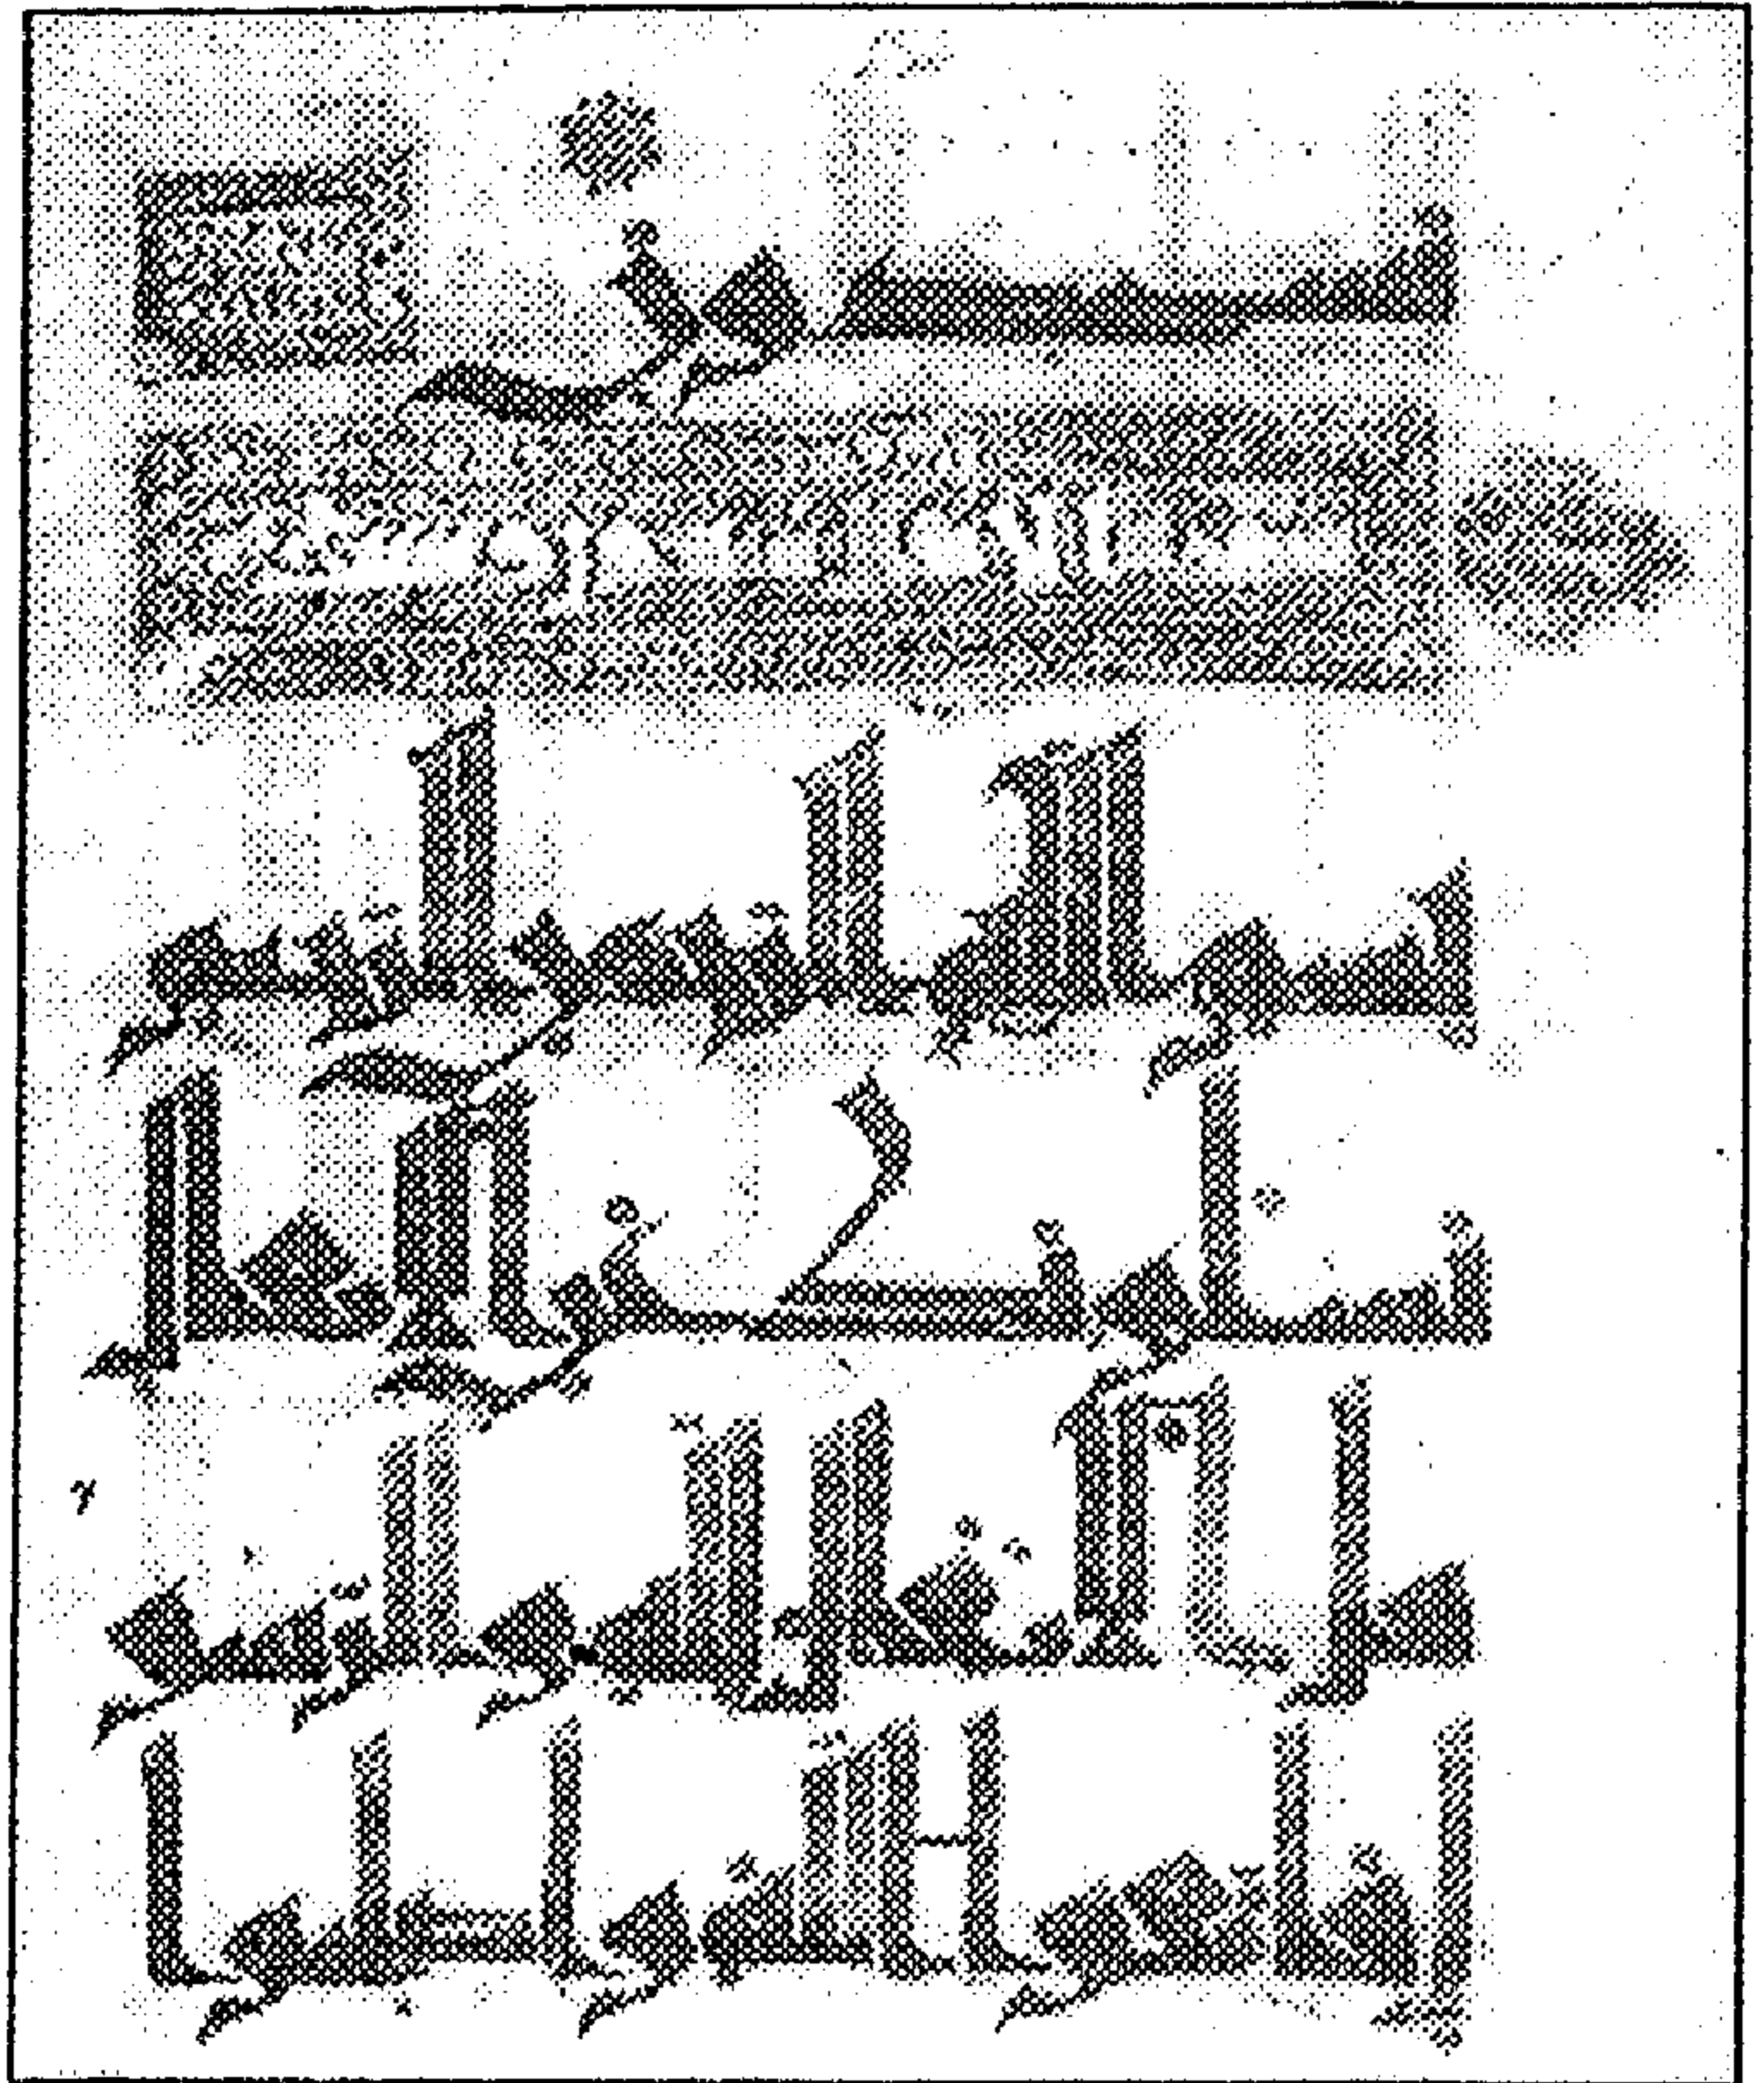 يسجدون
بسم الله الرحمن الرحيم
يسلونك عن الانفال
قل الانفال لله والرسو
ل فاتقوا الله واصلحوا